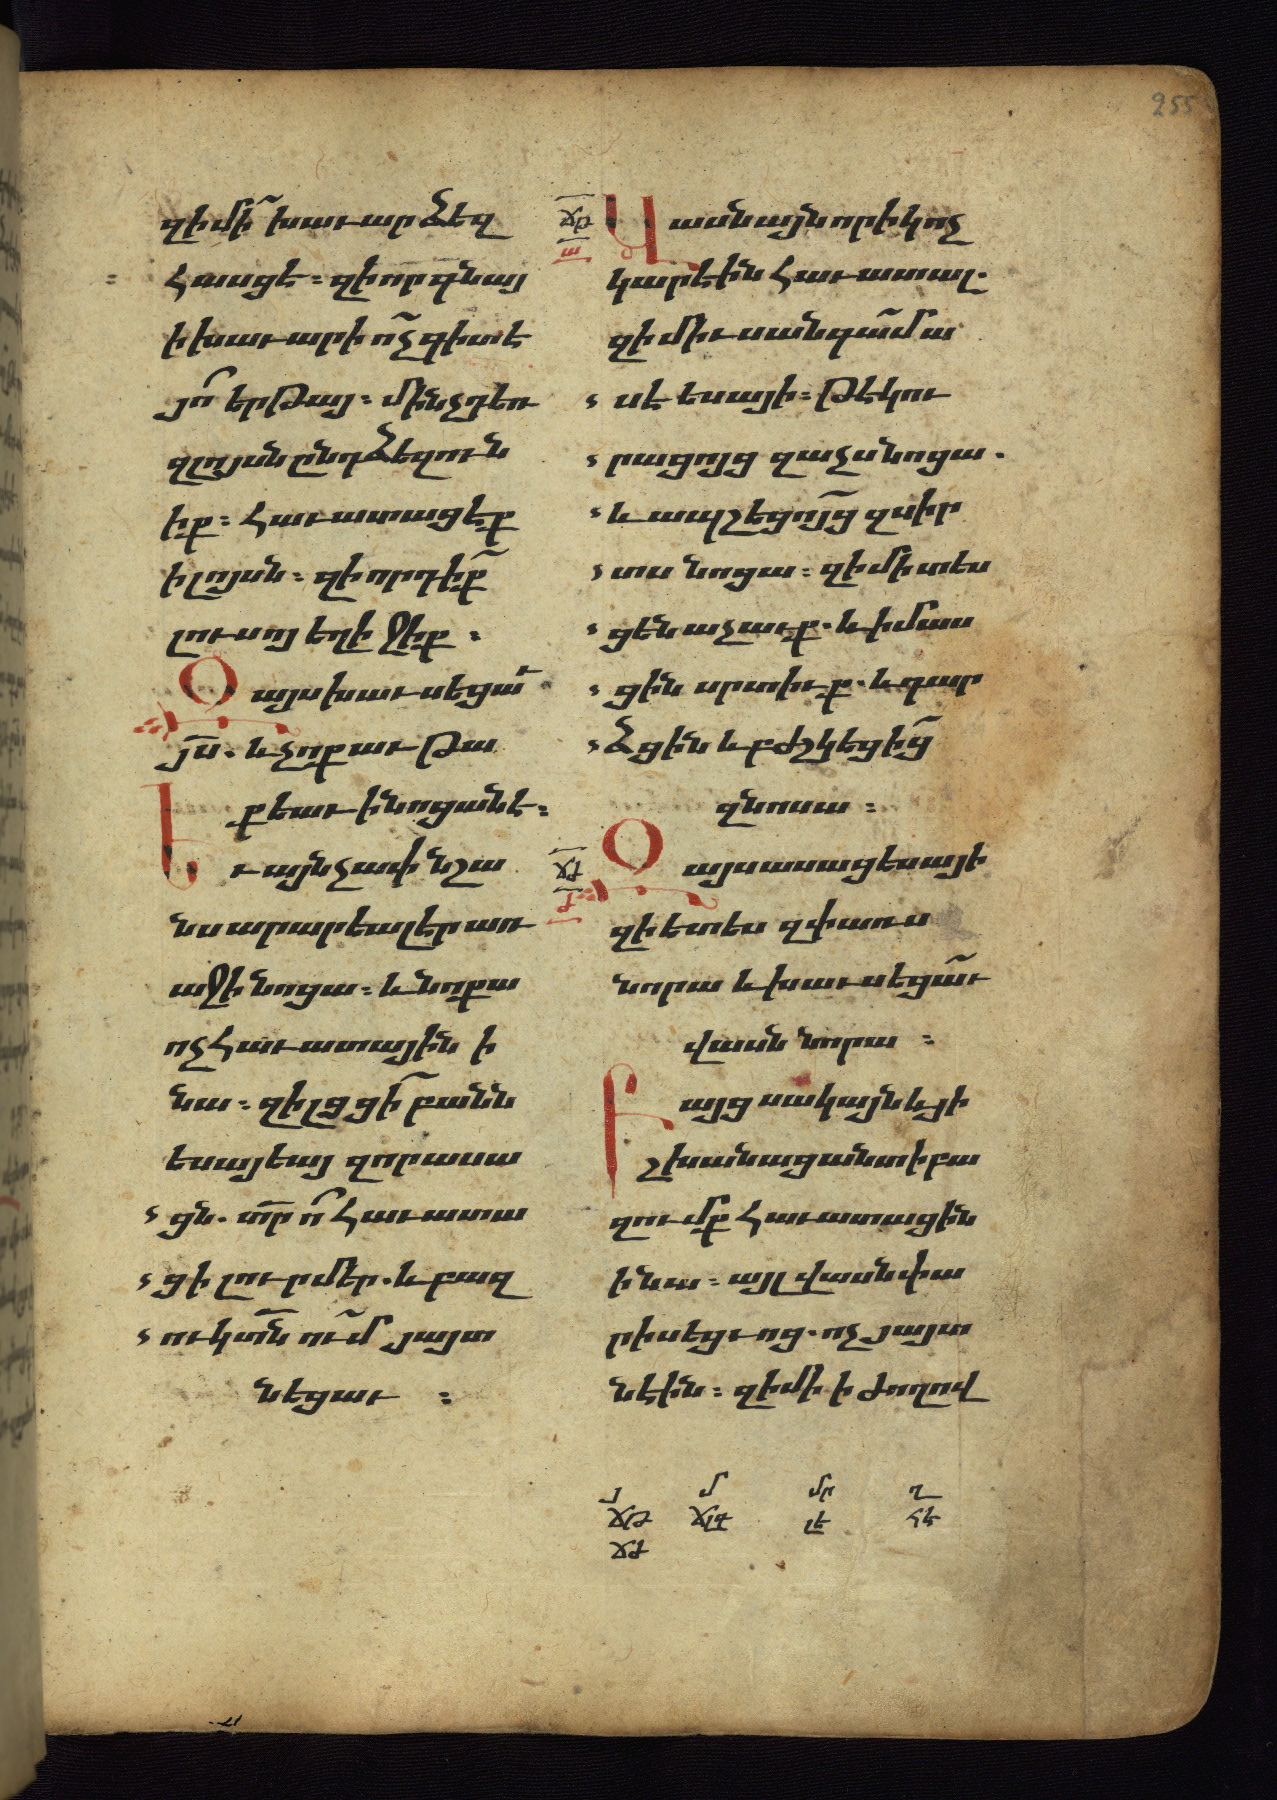 255
զի մի՛ խաւար ձեզ
հասցե։ զի որ գնայ
ի խաւարի ո՛չ գիտէ
յո՛ երթայ։ մինչդեռ
զլոյսն ընդ ձեզ ու՛ն
իք։ հաւատացէք
ի լոյսն։ զի որդիք
լուսոյ եղիջիք։
Զայս խաւսեցաւ
յս. և չոքաւ թա
քեաւ ի նոցանէ։
Եւ այնչափ նշա
նս արարեալ էր առ
աջի նոցա։ և նոքա
ոչ հաւատային ի
նա։ զի լցցի բանն
եսայեայ զոր ասա
ցն. տր ո՛ հաւատա
ց ի լուր մեր. և բազ
ուկ տն ում յայտ
նեցաւ։
ՃԹ
ա
Վասն այնորիկ ոչ
կարէին հաւատալ.
զի միւսանգամ ա
սէ եսայի։ թէ կու
րացոյց զաչս նոցա.
և ապշեցոյց զսիր
տս նոցա։ զի մի տես
ցեն աչաւք. և իմաս
ցին սրտիւք. և դար
ձցին և բժշկեցից
զնոսա։
ՃԺ
Ժ
Զայս ասաց եսայի
զի ետես զփառս
նորա և խաւսեցաւ
վասն նորա։
Բայց սակայն և յի
շխանաց անտի բա
զումք հաւատացին
ի նա։ այլ վասն փա
րիսեցւոց. ոչ յայտ
նէին։ զի մի ի ժողով
յ մ մր ղ
ՃԹ ՃԼԳ ԼԷ ՀԵ
ՃԺ